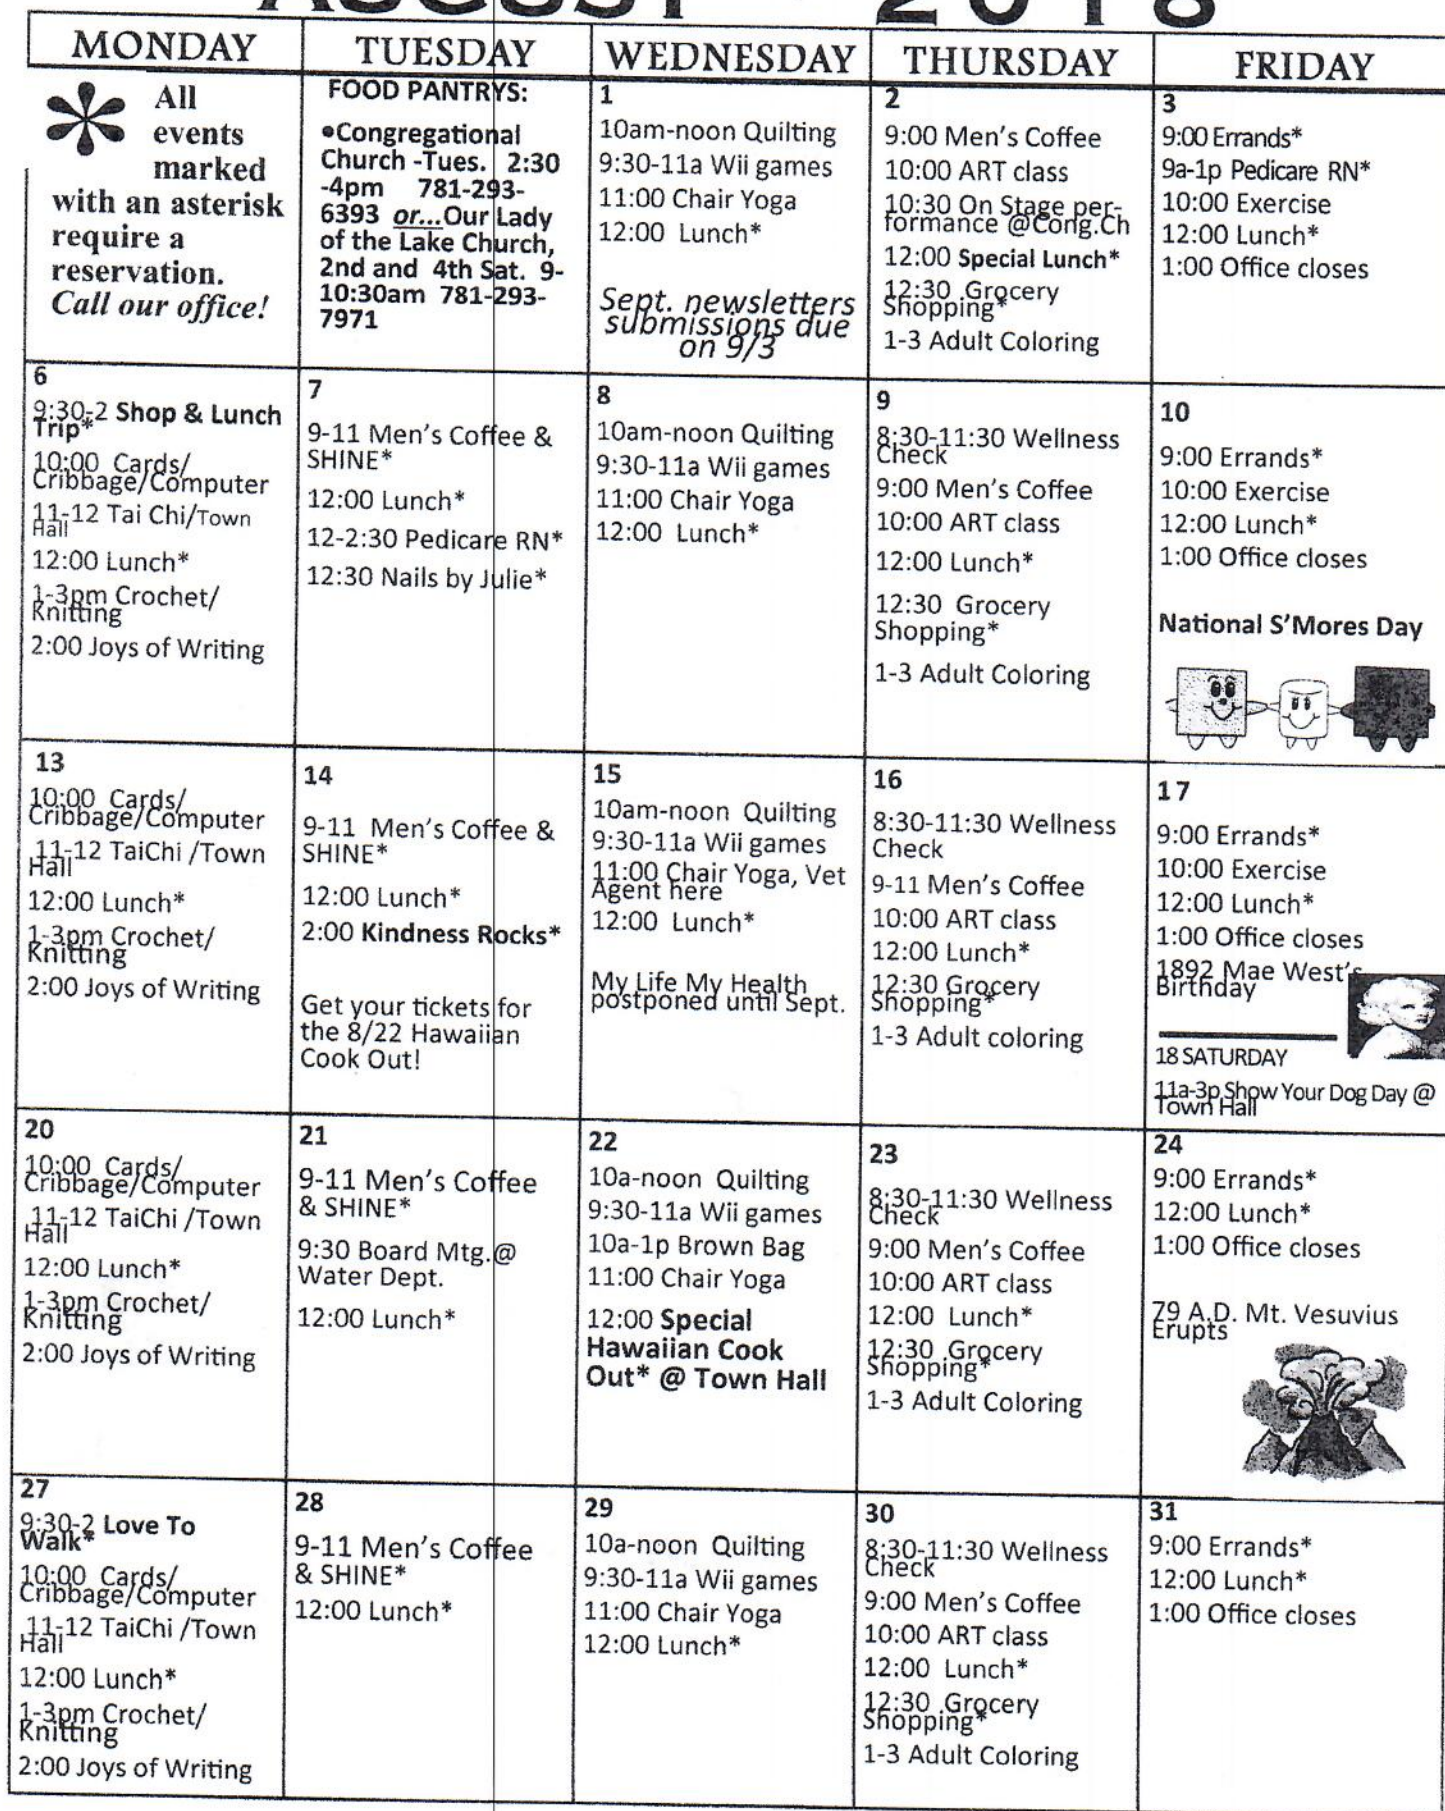 AUGUST 2018
MONDAY
TUESDAY
WEDNESDAY
THURSDAY
FRIDAY
* All
events
marked
with an asterisk
require a
reservation.
Call our office!
FOOD PANTRYS:
•Congregational
Church -Tues. 2:30
-4pm 781-293-
6393 or...Our Lady
of the Lake Church,
2nd and 4th Sat. 9-
10:30am 781-293-
7971
1
10am-noon Quilting
9:30-11a Wii games
11:00 Chair Yoga
12:00 Lunch*
Sept. newsletters
submissions due
on 9/3
2
9:00 Men's Coffee
10:00 ART class
10:30 On Stage per-
formance @Cong.Ch
12:00 Special Lunch*
12:30 Grocery
Shopping*
1-3 Adult Coloring
3
9:00 Errands*
9a-1p Pedicare RN*
10:00 Exercise
12:00 Lunch*
1:00 Office closes
6
9:30-2 Shop & Lunch
Trip*
10:00 Cards/
Cribbage/Computer
11-12 Tai Chi/Town
Hall
12:00 Lunch*
1-3pm Crochet/
Knitting
2:00 Joys of Writing
7
9-11 Men's Coffee &
SHINE*
12:00 Lunch*
12-2:30 Pedicare RN*
12:30 Nails by Julie*
8
10am-noon Quilting
9:30-11a Wii games
11:00 Chair Yoga
12:00 Lunch*
9
8:30-11:30 Wellness
Check
9:00 Men's Coffee
10:00 ART class
12:00 Lunch*
12:30 Grocery
Shopping*
1-3 Adult Coloring
10
9:00 Errands*
10:00 Exercise
12:00 Lunch*
1:00 Office closes
National S'Mores Day
13
10:00 Cards/
Cribbage/Computer
11-12 TaiChi /Town
Hall
12:00 Lunch*
1-3pm Crochet/
Knitting
2:00 Joys of Writing
14
9-11 Men's Coffee &
SHINE*
12:00 Lunch*
2:00 Kindness Rocks*
Get your tickets for
the 8/22 Hawaiian
Cook Out!
15
10am-noon Quilting
9:30-11a Wii games
11:00 Chair Yoga, Vet
Agent here
12:00 Lunch*
My Life My Health
postponed until Sept.
16
8:30-11:30 Wellness
Check
9-11 Men's Coffee
10:00 ART class
12:00 Lunch*
12:30 Grocery
Shopping*
1-3 Adult coloring
17
9:00 Errands*
10:00 Exercise
12:00 Lunch*
1:00 Office closes
1892 Mae West's
Birthday
18 SATURDAY
11a-3p Show Your Dog Day @
Town Hall
20
10:00 Cards/
Cribbage/Computer
11-12 TaiChi /Town
Hall
12:00 Lunch*
1-3pm Crochet/
Knitting
2:00 Joys of Writing
21
9-11 Men's Coffee
& SHINE*
9:30 Board Mtg.@
Water Dept.
12:00 Lunch*
22
10a-noon Quilting
9:30-11a Wii games
10a-1p Brown Bag
11:00 Chair Yoga
12:00 Special
Hawaiian Cook
Out* @ Town Hall
23
8:30-11:30 Wellness
Check
9:00 Men's Coffee
10:00 ART class
12:00 Lunch*
12:30 Grocery
Shopping*
1-3 Adult Coloring
24
9:00 Errands*
12:00 Lunch*
1:00 Office closes
79 A.D. Mt. Vesuvius
Erupts
27
9:30-2 Love To
Walk*
10:00 Cards/
Cribbage/Computer
11-12 TaiChi /Town
Hall
12:00 Lunch*
1-3pm Crochet/
Knitting
2:00 Joys of Writing
28
9-11 Men's Coffee
& SHINE*
12:00 Lunch*
29
10a-noon Quilting
9:30-11a Wii games
11:00 Chair Yoga
12:00 Lunch*
30
8:30-11:30 Wellness
Check
9:00 Men's Coffee
10:00 ART class
12:00 Lunch*
12:30 Grocery
Shopping*
1-3 Adult Coloring
31
9:00 Errands*
12:00 Lunch*
1:00 Office closes